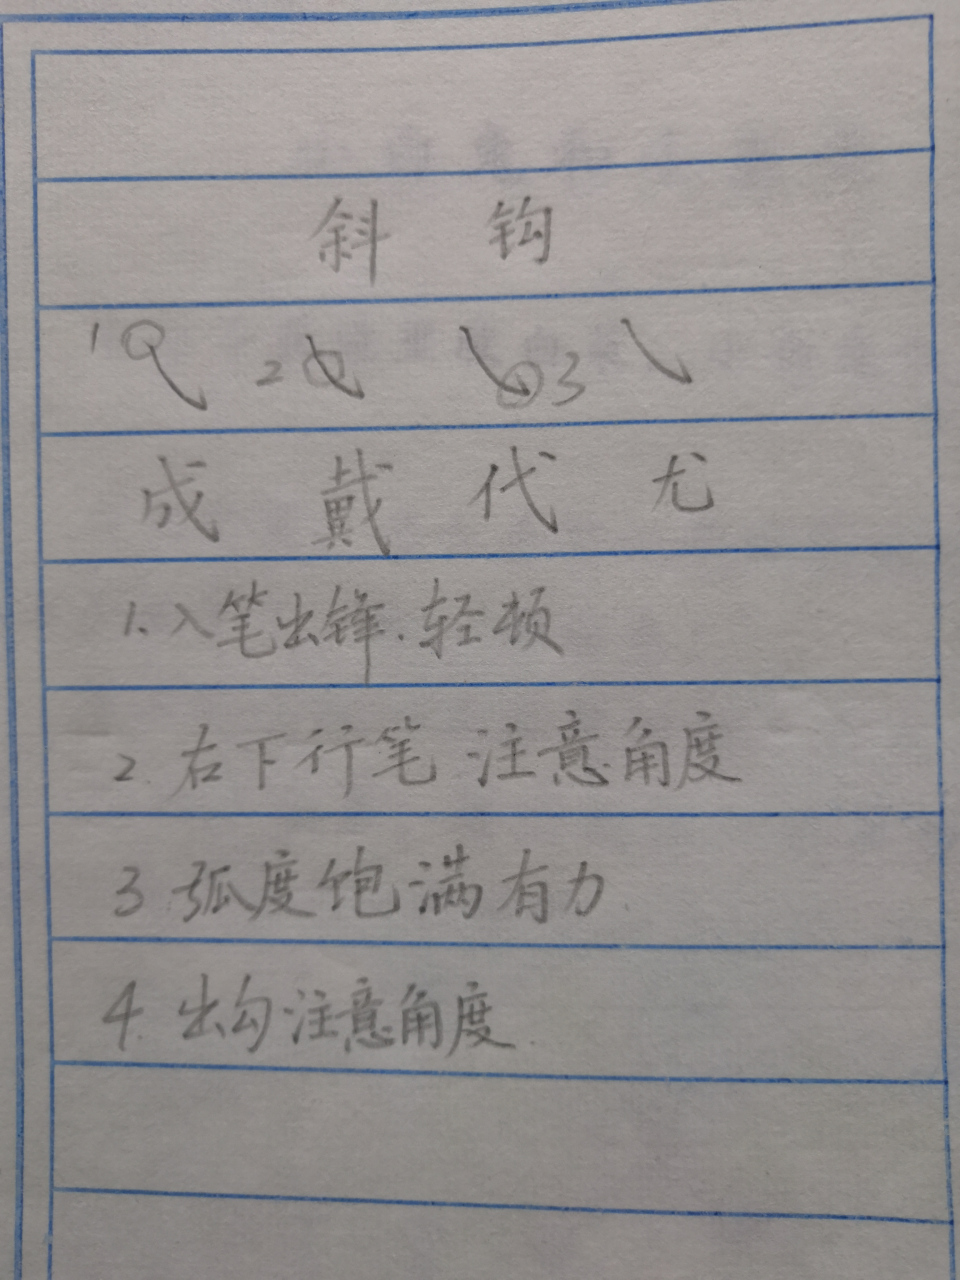 斜 钩
1 2 3
成 戴 代 尤
1. 入笔出锋.轻顿
2. 右下行笔 注意角度
3 弧度饱满有力.
4. 出勾注意角度.